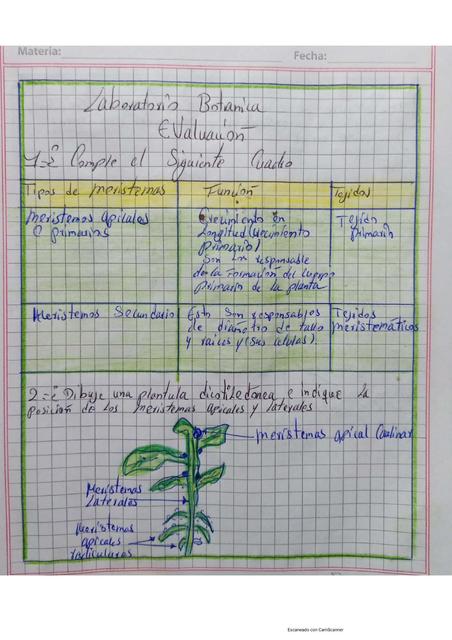 Materia:
Fecha:
Laboratorio Botanica
Evaluación
1=¿ Comple el Siguiente Cuadro
Tipos de meristemas Función Tejidos
Meristemos apicales
o primarios
Crecimiento en
longitud (crecimiento
primario)
Son los responsable
de la Formación del Cuerpo
primario de la planta
Tejido
primario
Meristemos Secundario
Esto son responsables
de diametro de tallo
y raices y (sus celulas).
Tejidos
meristemáticos
2=¿ Dibuje una plantula dicotiledonea e indique la
posición de los meristemas apicales y laterales
meristemas apical Caulinar
Meristemas
laterales
Meristemas
apicales
radiculares
Escaneado con CamScanner